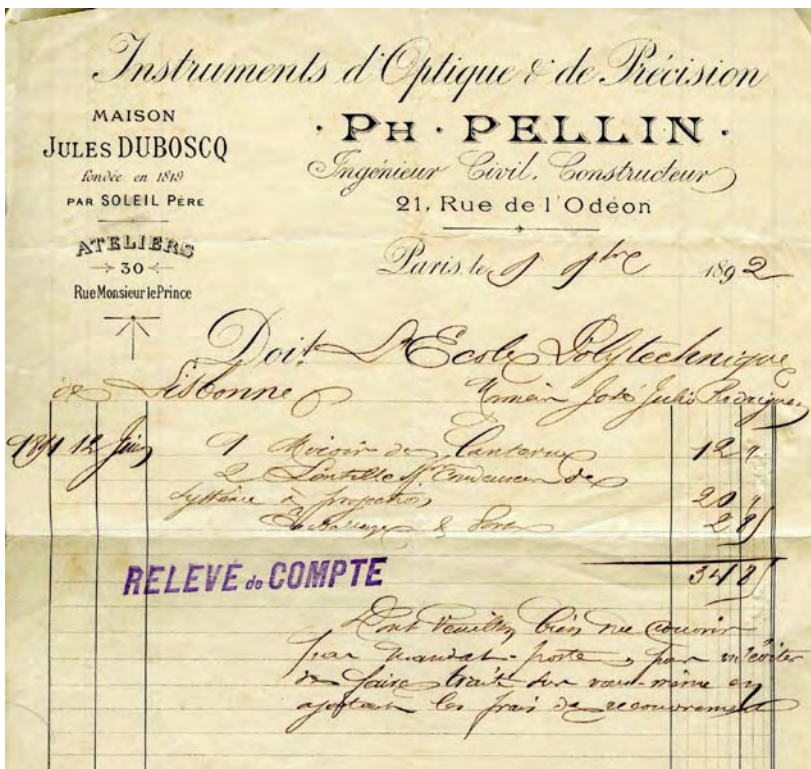 Instruments d'Optique & de Précision
MAISON
JULES DUBOSCQ
fondée en 1819
PAR SOLEIL PÈRE
ATELIERS
30
Rue Monsieur le Prince
· PH · PELLIN ·
Ingénieur Civil, Constructeur
21, Rue de l'Odéon
Paris, le 9 9bre 1892
Doit L'Ecole Polytechnique
de Lisbonne José Julio Rodrigues
1891 12 Juin 1 Miroir de Lanterne 12 "
2 Lentilles Condenseur de
système à projection 20 "
Emballage & Port 2 85
RELEVÉ de COMPTE 34 85
Dont veuillez bien me couvrir
par mandat-poste, pour m'éviter
de faire traite sur vous-même en
ajoutant les frais de recouvrement